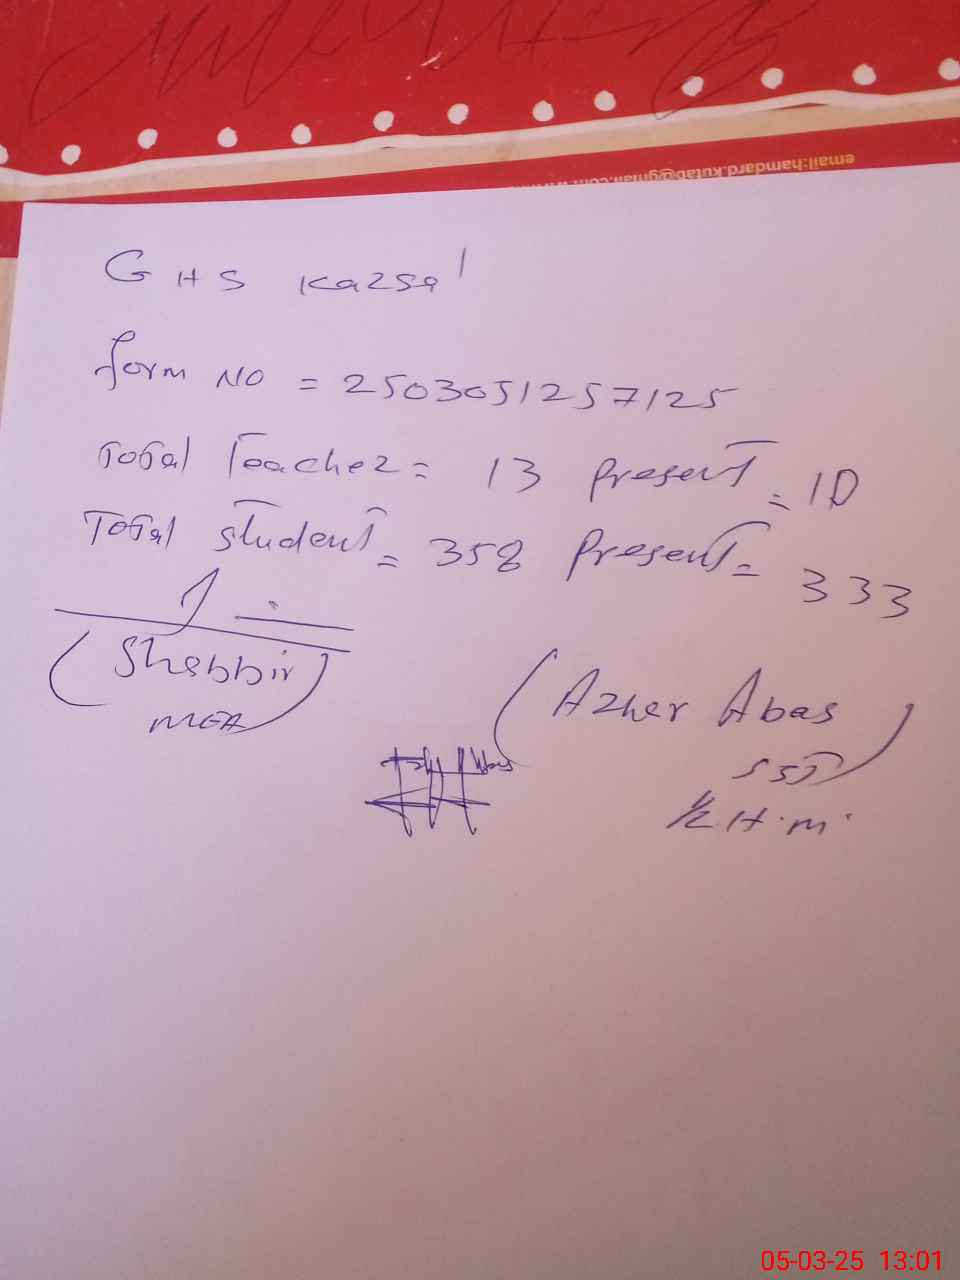 email:hamdard.kutab@gmail.com
GHS Kazsal
form NO = 2503051257125
Total Teacher = 13 Present = 10
Total student = 358 Present = 333
(Shabbir)
MEA
(Azher Abas)
SST
H.m.
05-03-25 13:01